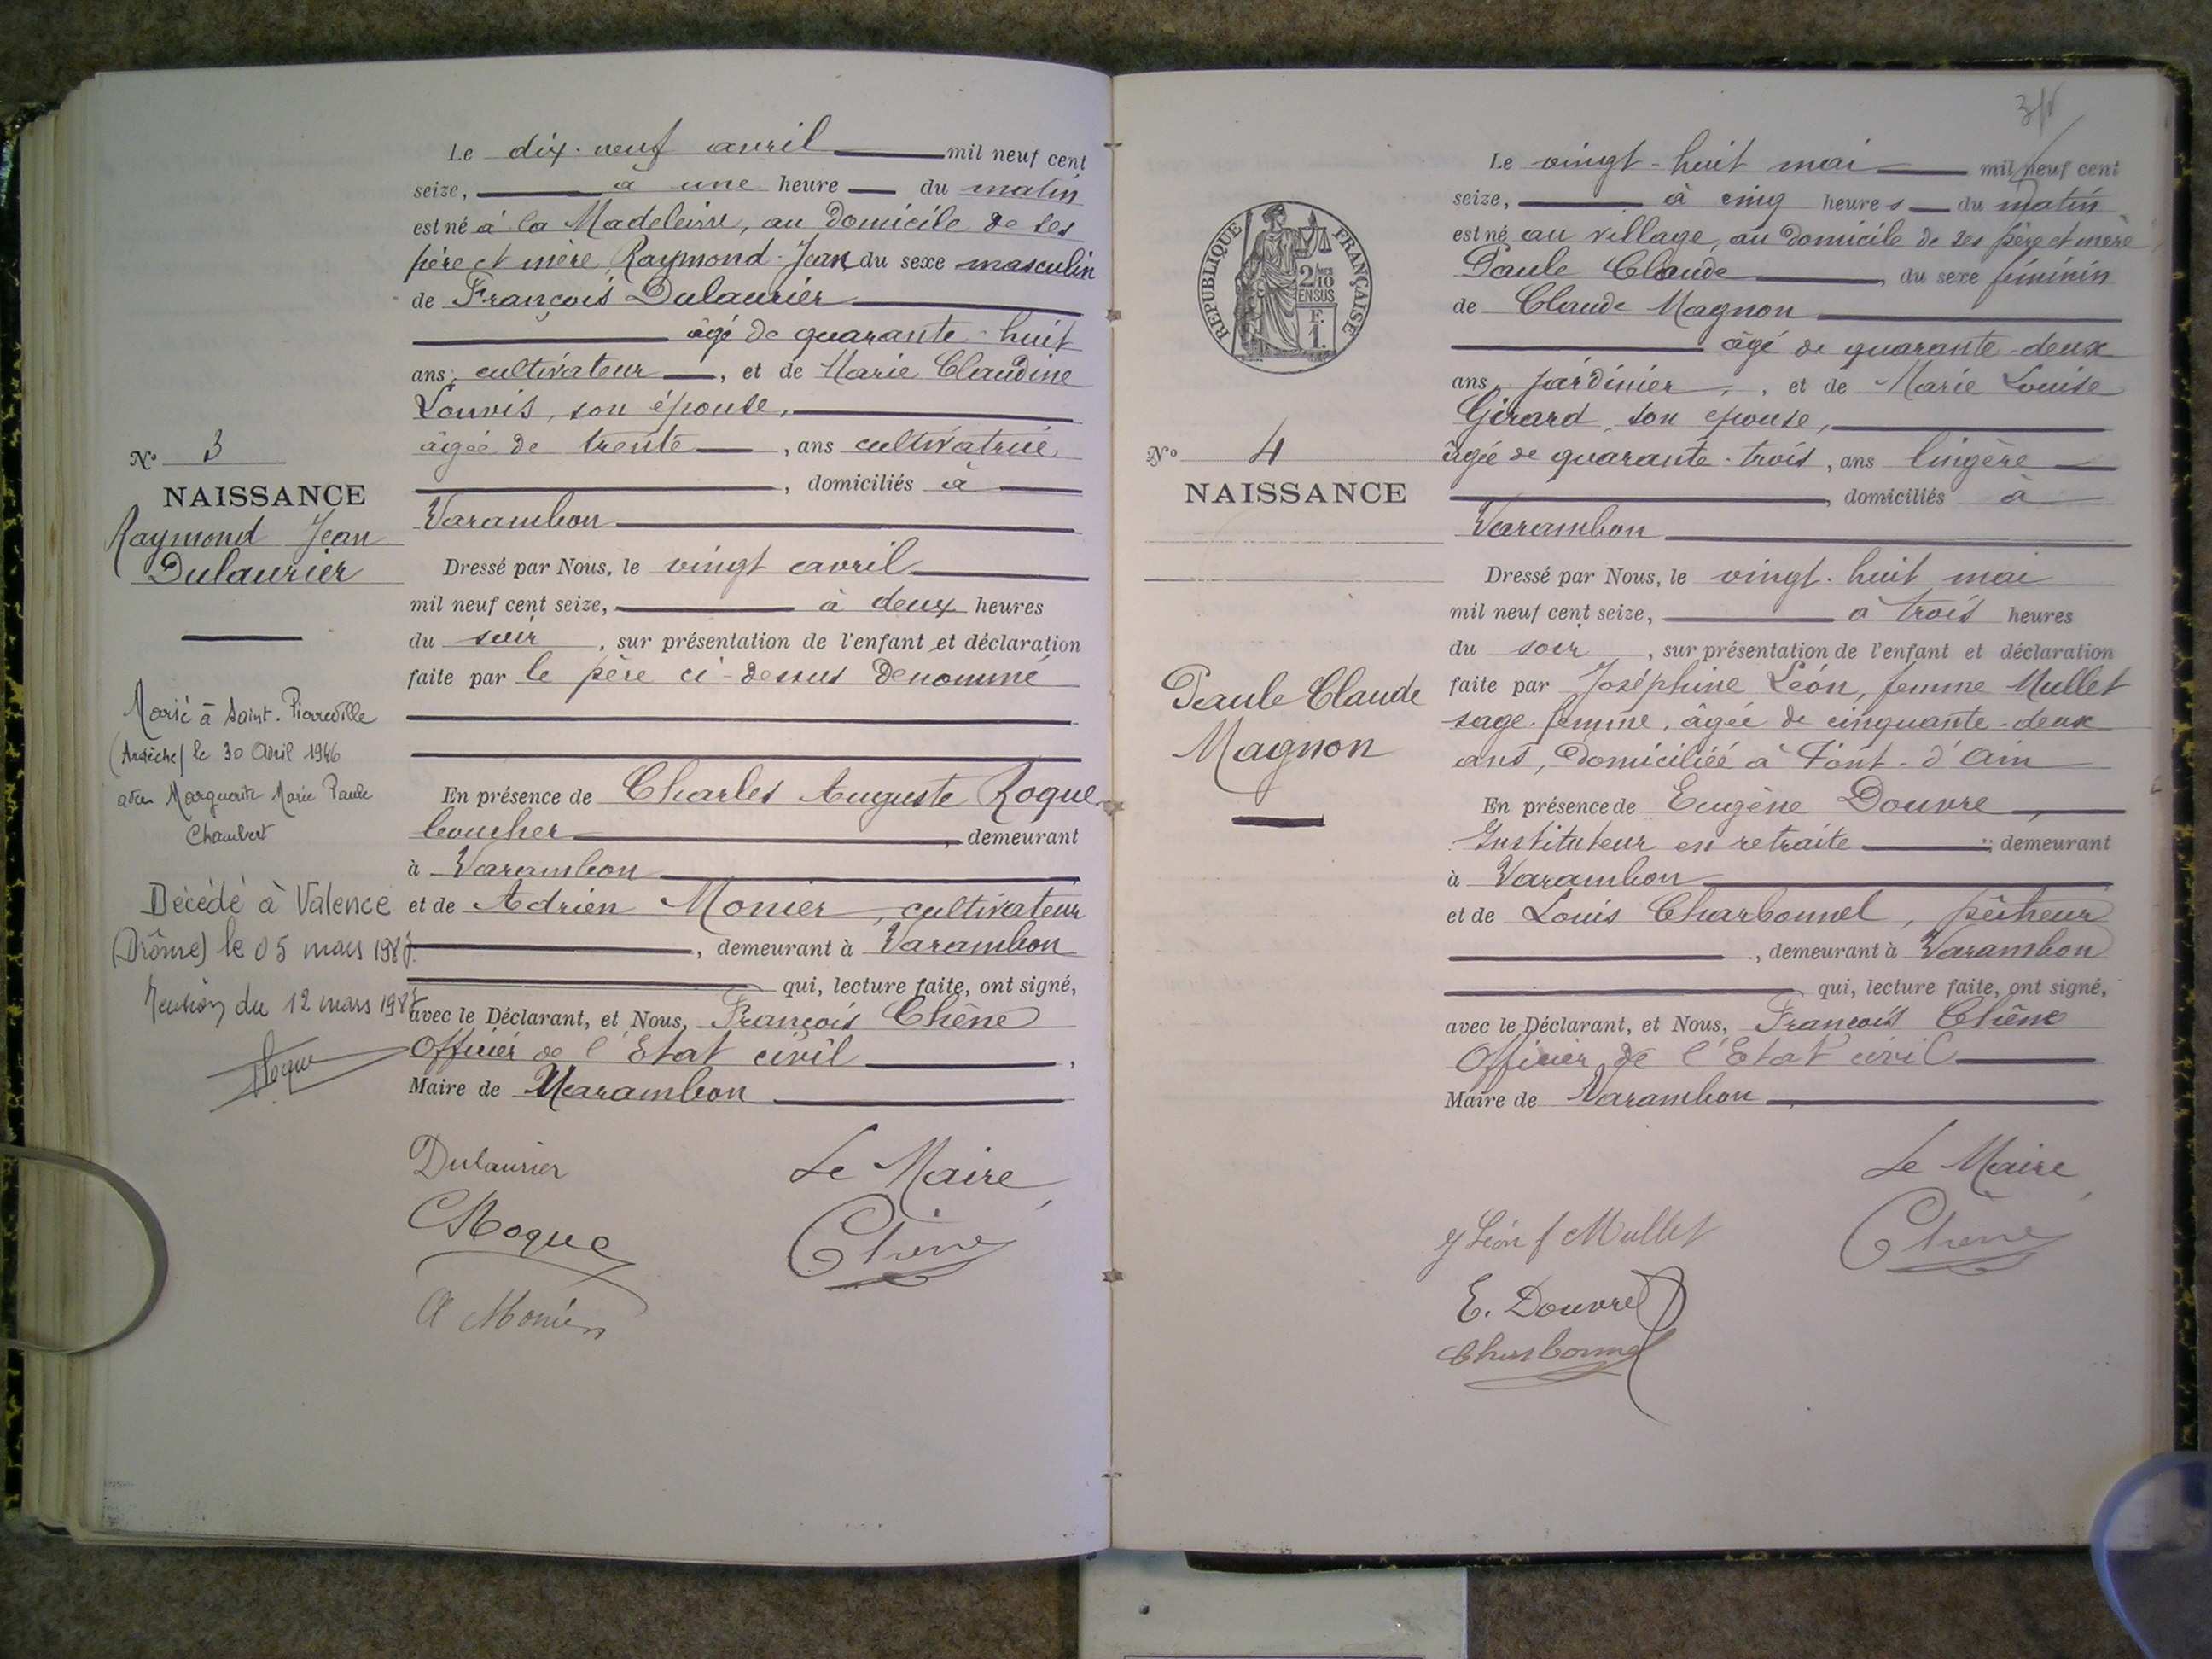 Le dix-neuf avril mil neuf cent
seize, à une heure du matin
est né à la Madeleine, au domicile de ses
père et mère, Raymond-Jean du sexe masculin
de François Dulaurier
âgé de quarante-huit
ans, cultivateur, et de Marie Claudine
Louvis, son épouse,
âgée de trente, ans cultivatrice
, domiciliés à
Varambon
Dressé par Nous, le vingt avril
mil neuf cent seize, à deux heures
du soir, sur présentation de l'enfant et déclaration
faite par le père ci-dessus dénommé
En présence de Charles Auguste Roque
boucher, demeurant
à Varambon
et de Adrien Monier, cultivateur
, demeurant à Varambon
qui, lecture faite, ont signé,
avec le Déclarant, et Nous, François Chêne
Officier de l'Etat civil,
Maire de Varambon
Dulaurier
Le Maire,
CRoque
Chêne
A Monier
No 3
NAISSANCE
Raymond Jean
Dulaurier
Marié à Saint-Pierreville
(Ardèche) le 30 Avril 1946
avec Marguerite Marie Paule
Chambert
Décédé à Valence
(Drôme) le 05 mars
Mention du 12 mars
Roque
No 4
NAISSANCE
Paule Claude
Magnon
RÉPUBLIQUE FRANÇAISE
2/10
EN SUS
F.
1.
Le vingt-huit mai mil neuf cent
seize, à cinq heures du matin
est né au village, au domicile de ses père et mère
Paule Claude, du sexe féminin
de Claude Magnon
âgé de quarante-deux
ans, jardinier, et de Marie Louise
Girard, son épouse,
âgée de quarante-trois, ans lingère
, domiciliés à
Varambon
Dressé par Nous, le vingt-huit mai
mil neuf cent seize, à trois heures
du soir, sur présentation de l'enfant et déclaration
faite par Joséphine Léon, femme Mullet
sage-femme, âgée de cinquante-deux
ans, domiciliée à Pont-d'Ain
En présence de Eugène Douvre,
Instituteur en retraite, demeurant
à Varambon
et de Louis Charbonnel, pêcheur
, demeurant à Varambon
qui, lecture faite, ont signé,
avec le Déclarant, et Nous, François Chêne
Officier de l'Etat civil
Maire de Varambon
Le Maire,
Léon f Mullet
Chêne
E. Douvre
Charbonnel